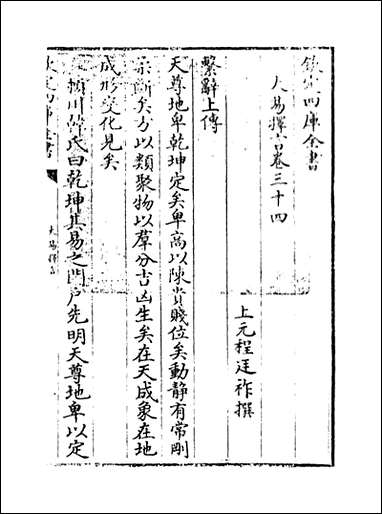 欽定四庫全書
大易擇言卷三十四
上元程廷祚撰
繫辭上傳
天尊地卑乾坤定矣卑高以陳貴賤位矣動靜有常剛
柔斷矣方以類聚物以羣分吉凶生矣在天成象在地
成形變化見矣
潁川韓氏曰乾坤其易之門戶先明天尊地卑以定
欽定四庫全書
大易擇言